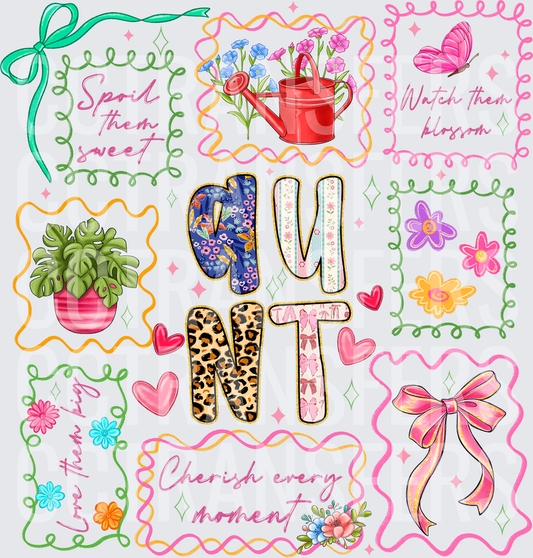 Spoil
them
sweet
Watch them
blossom
au
NT
Love them big
Cherish every
moment